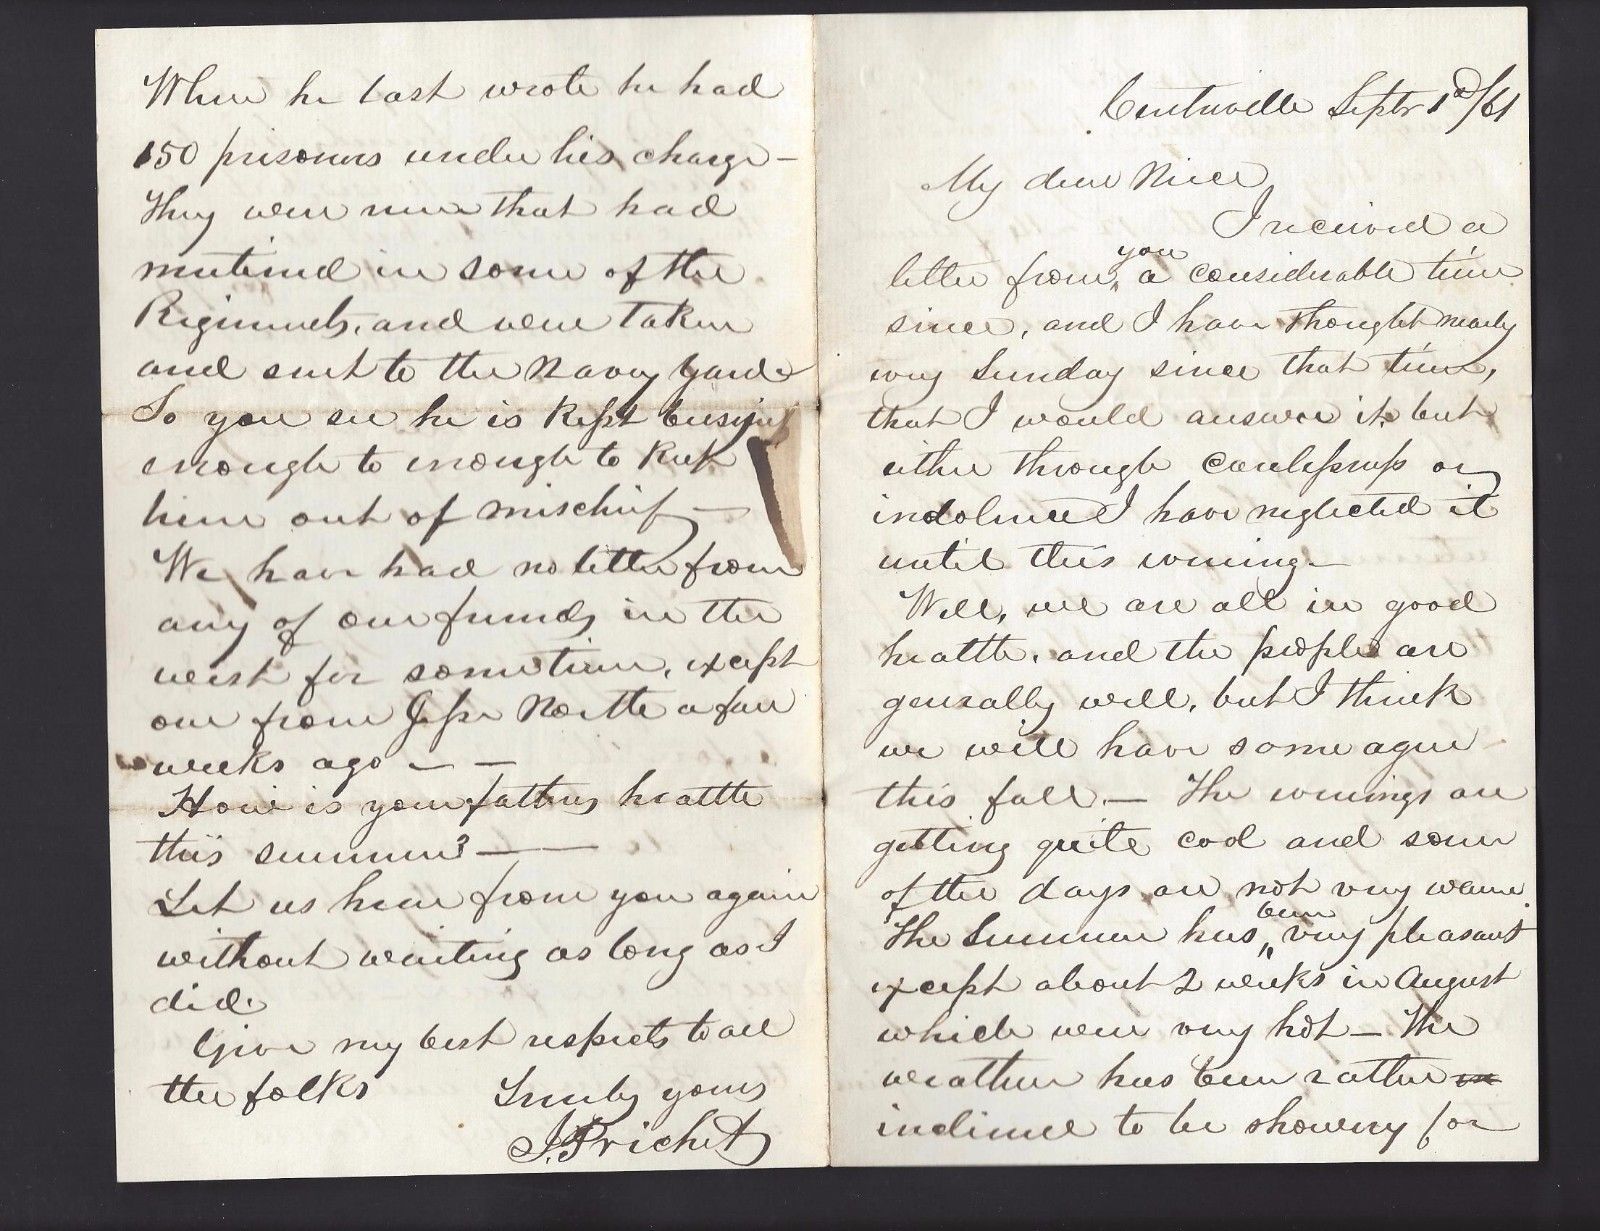 Centreville Septr 1d/61
My dear Niece
I received a
letter from you a considerable time
since, and I have thought nearly
every Sunday since that time,
that I would answer it, but
either through carelessness or
indolence I have neglected it
until this evening —
Well, we are all in good
health, and the people are
generally well, but I think
we will have some ague
this fall — The evenings are
getting quite cool and some
of the days are not very warm.
The Summer has been very pleasant
except about 2 weeks in August
which were very hot — The
weather has been rather in
inclined to be showery for
When he last wrote he had
150 prisoners under his charge —
They were men that had
mutinied in some of the
Regiments, and were taken
and sent to the Navy Yard
So you see he is kept busy
enough to enough to keep
him out of mischief —
We have had no letter from
any of our friends in the
west for sometime, except
one from Jesse North a few
weeks ago — —
How is your fathers health
this summer? — —
Let us hear from you again
without waiting as long as I
did.
Give my best respects to all
the folks
Truly yours
J. Prichet